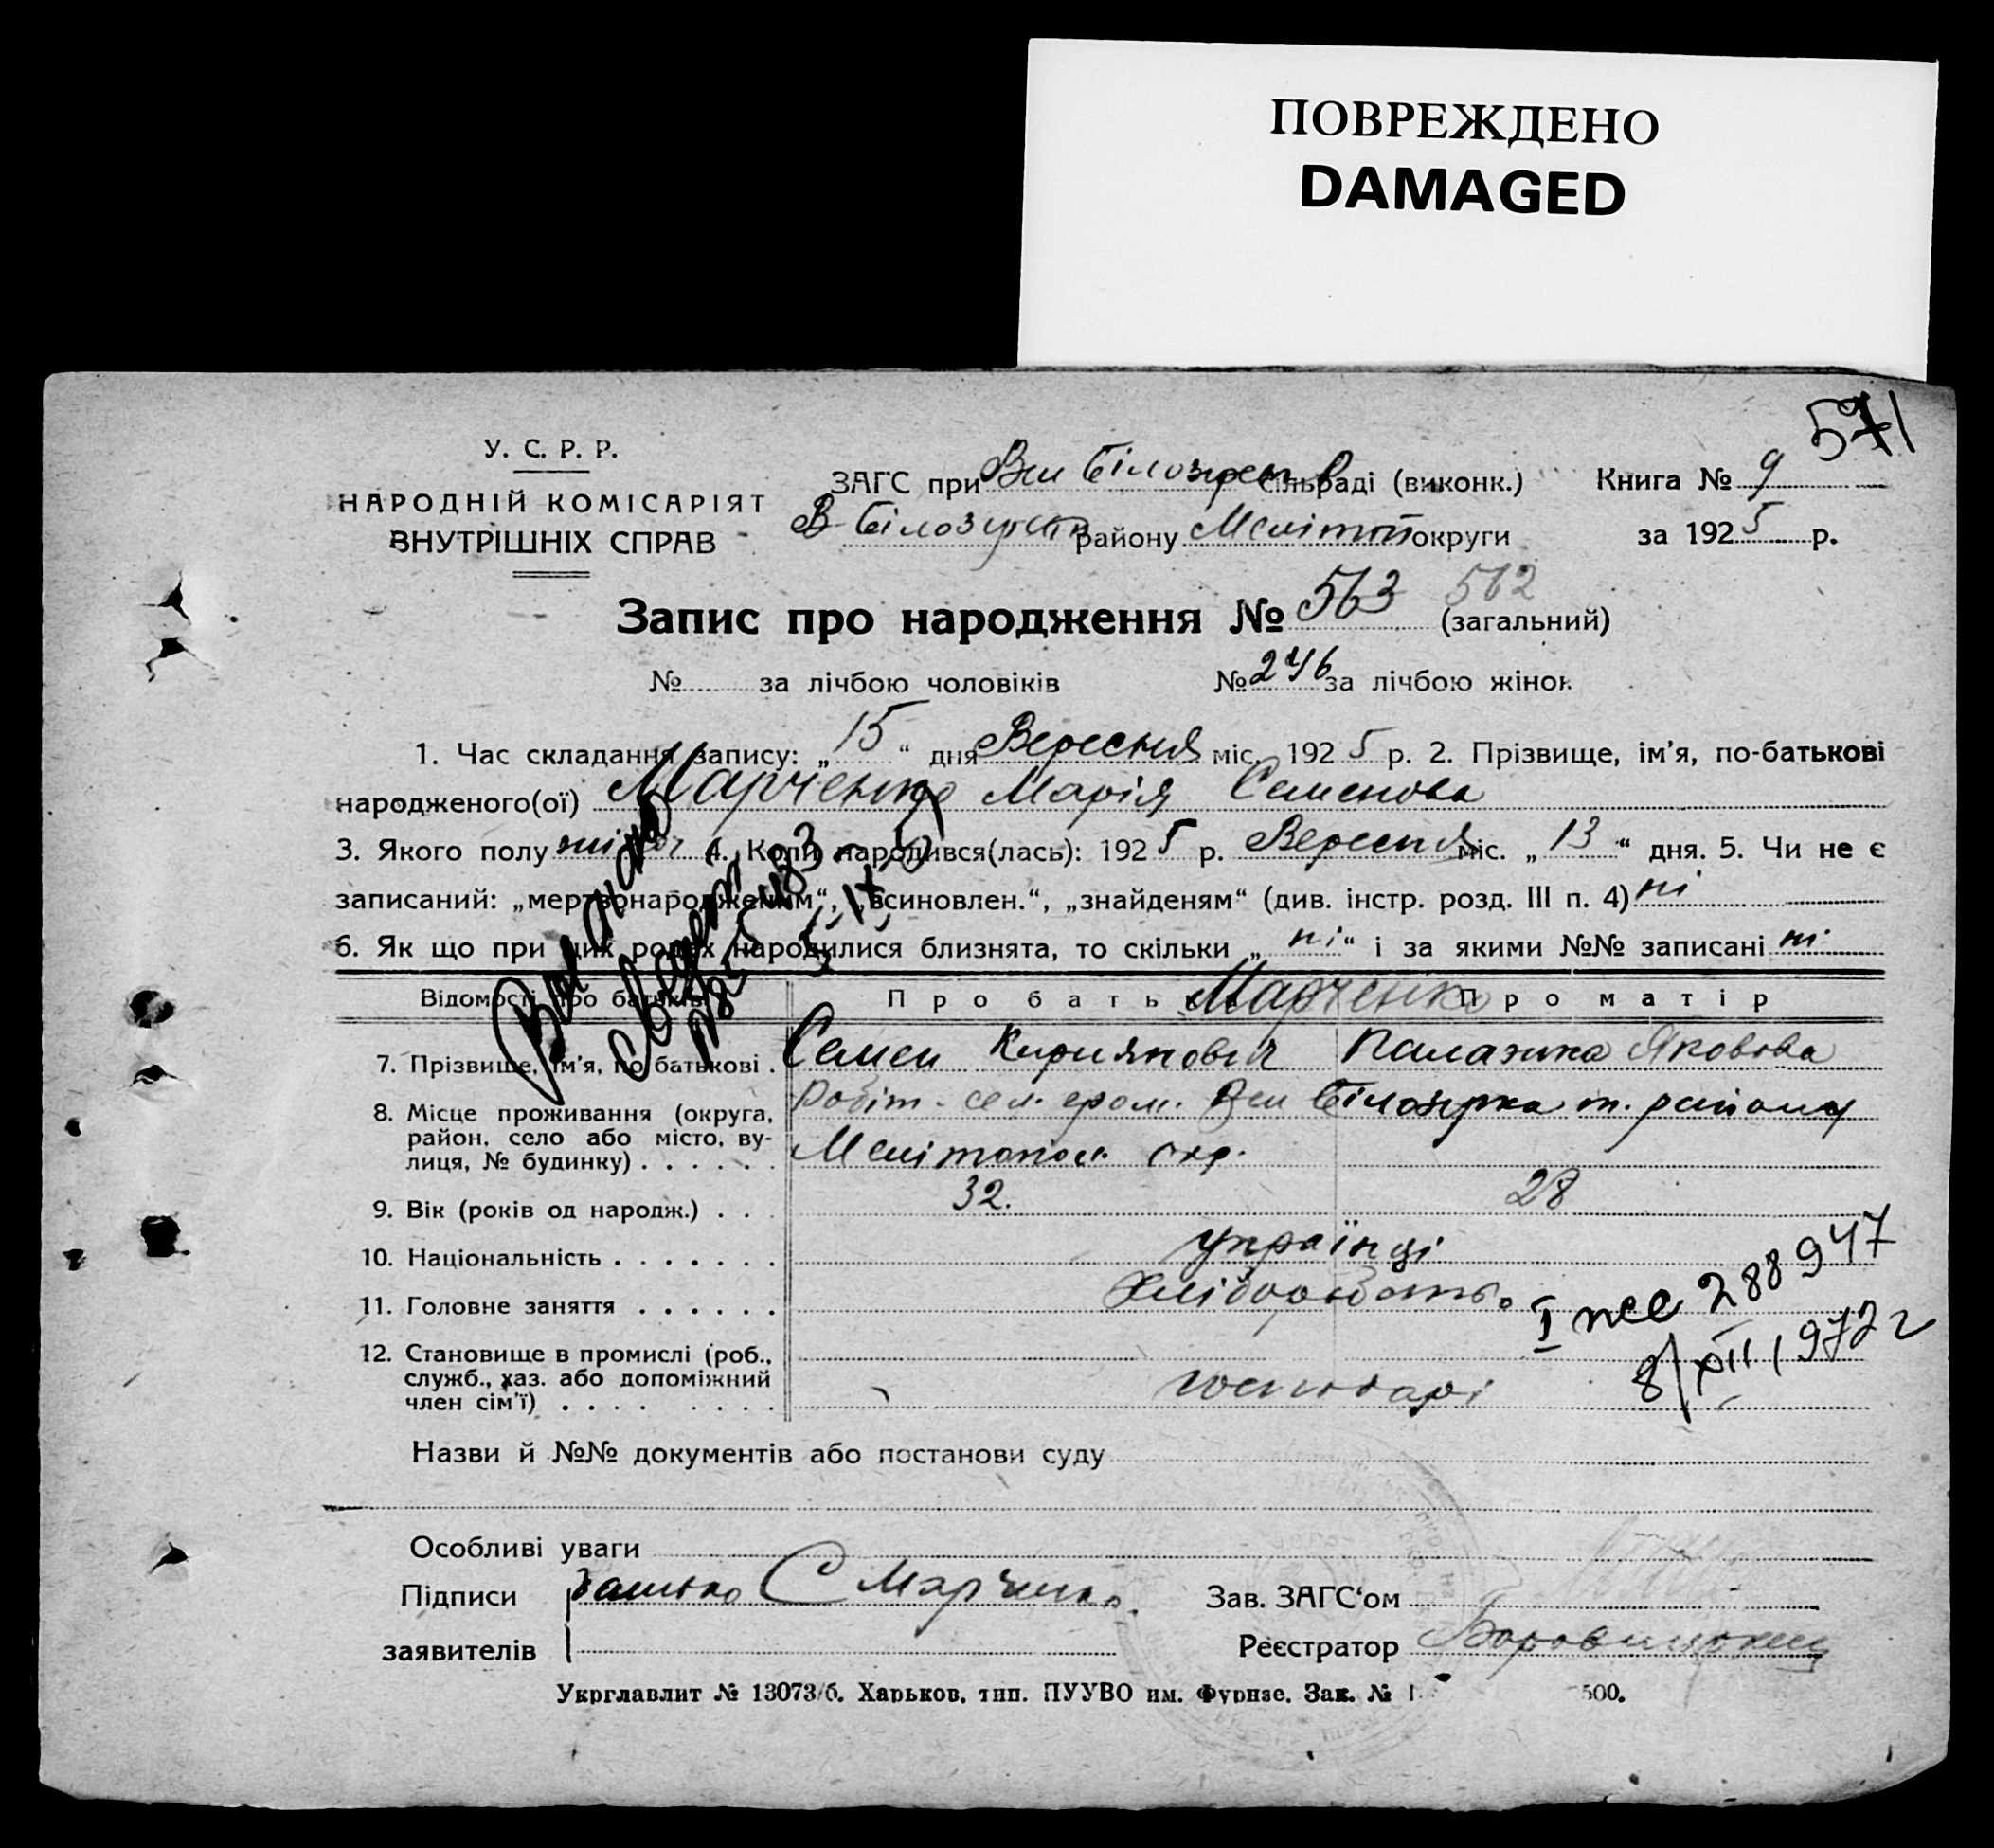 ПОВРЕЖДЕНО
DAMAGED
571
У. С. Р. Р.
НАРОДНІЙ КОМІСАРІЯТ
ВНУТРІШНІХ СПРАВ
ЗАГС при Вел Білозерс сільраді (виконк.) Книга № 9
В-Білозерськ району Меліт округи за 1925 р.
Запис про народження № 563 562 (загальний)
№ за лічбою чоловіків № 246 за лічбою жінок
1. Час складання запису: „15“ дня Вересня міс. 1925 р. 2. Прізвище, ім’я, по-батькові
народженого(ої) Марченко Марія Семенова
3. Якого полу жіноч 4. Коли народився(лась): 1925 р. Вересня міс. „13“ дня. 5. Чи не є
записаний: „мертвонародженим“, „всиновлен.“, „знайденям“ (див. інстр. розд. III п. 4) ні
6. Як що при цих родах народилися близнята, то скільки „ні“ і за якими №№ записані ні
Відомості про батьків Про батька Марченко Про матір
7. Прізвище, ім’я, по батькові . Семен Кириянович Палажка Яковова
8. Місце проживання (округа, район, село або місто, вулиця, № будинку) . . . . . . Вел Білозірка т. району
Мелітопол. окр.
9. Вік (років од народж.) . . . 32. 28
10. Національність . . . . . . . українці
11. Головне заняття . . . . . . Хліборобство
I 288947
8/XII 1972 г
12. Становище в промислі (роб., служб., хаз. або допоміжний член сім’ї) . . . . . . . . господарі
Назви й №№ документів або постанови суду
Особливі уваги
Підписи батько С Марченко. Зав. ЗАГС‘ом
заявителів Реєстратор
Укрглавлит № 13073/б. Харьков. тип. ПУУВО им. Фрунзе. Зак. № 500.